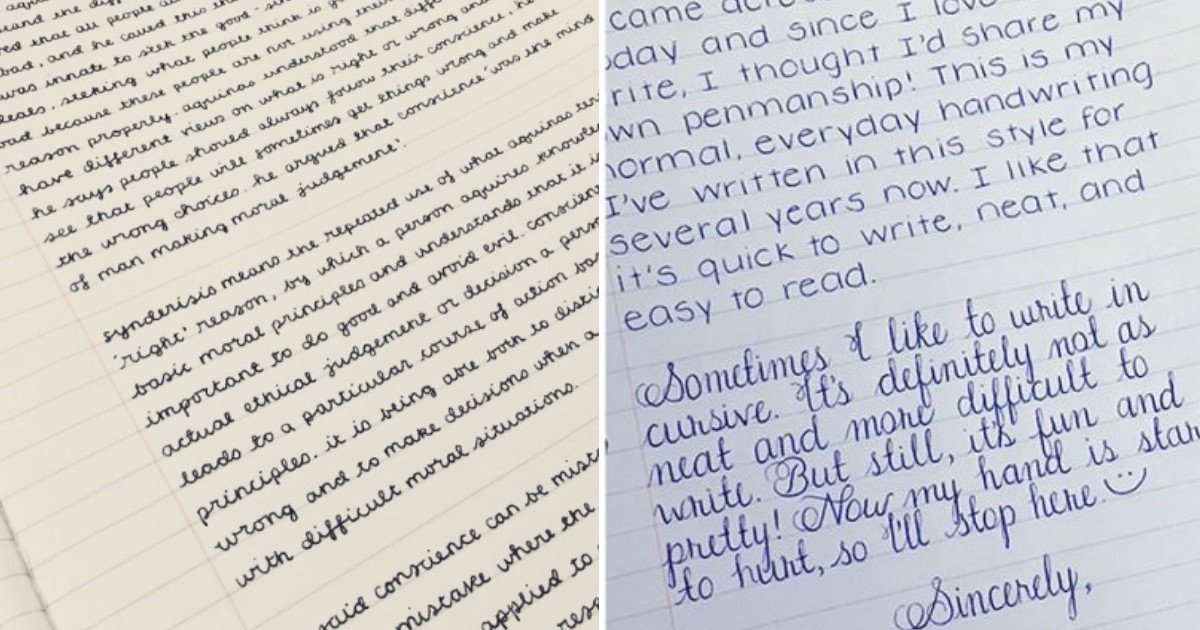 and the diff
ed that all people a
bad, and he called this th
was innate to seek the good - sin
deals, seeking what people think is g
bad because these people are not using their
reason properly. aquinas understood that diff
have different views on what is right or wrong an
he says people should always follow their conscience, he
see that people will sometimes get things wrong and make
the wrong choices. he argued that conscience 'was the mind
of man making moral judgement'.
synderisis means the repeated use of what aquinas ter
'right' reason, by which a person aquires knowle
basic moral principles and understands that it is
important to do good and avoid evil. conscien
actual ethical judgement or decision a pers
leads to a particular course of action ba
principles. it is being are both to disti
wrong and to make decisions when a
with difficult moral situations.
said conscience can be mist
mistake where the
applied to
resp
came acro
oday and since I love
rite, I thought I'd share my
wn penmanship! This is my
normal, everyday handwriting
I've written in this style for
several years now. I like that
it's quick to write, neat, and
easy to read.
Sometimes I like to write in
cursive. It's definitely not as
neat and more difficult to
write. But still, it's fun and
pretty! Now my hand is star
to hurt, so I'll stop here.
Sincerely,